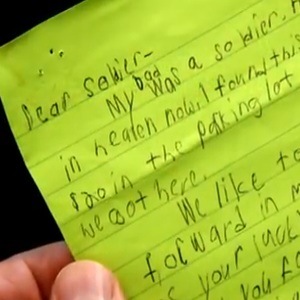 Dear soldier-
My dad was a soldier. H
in heaven now. I found this
$20 in the parking lot
we got here.
We like to
forward in m
your luck
you fo